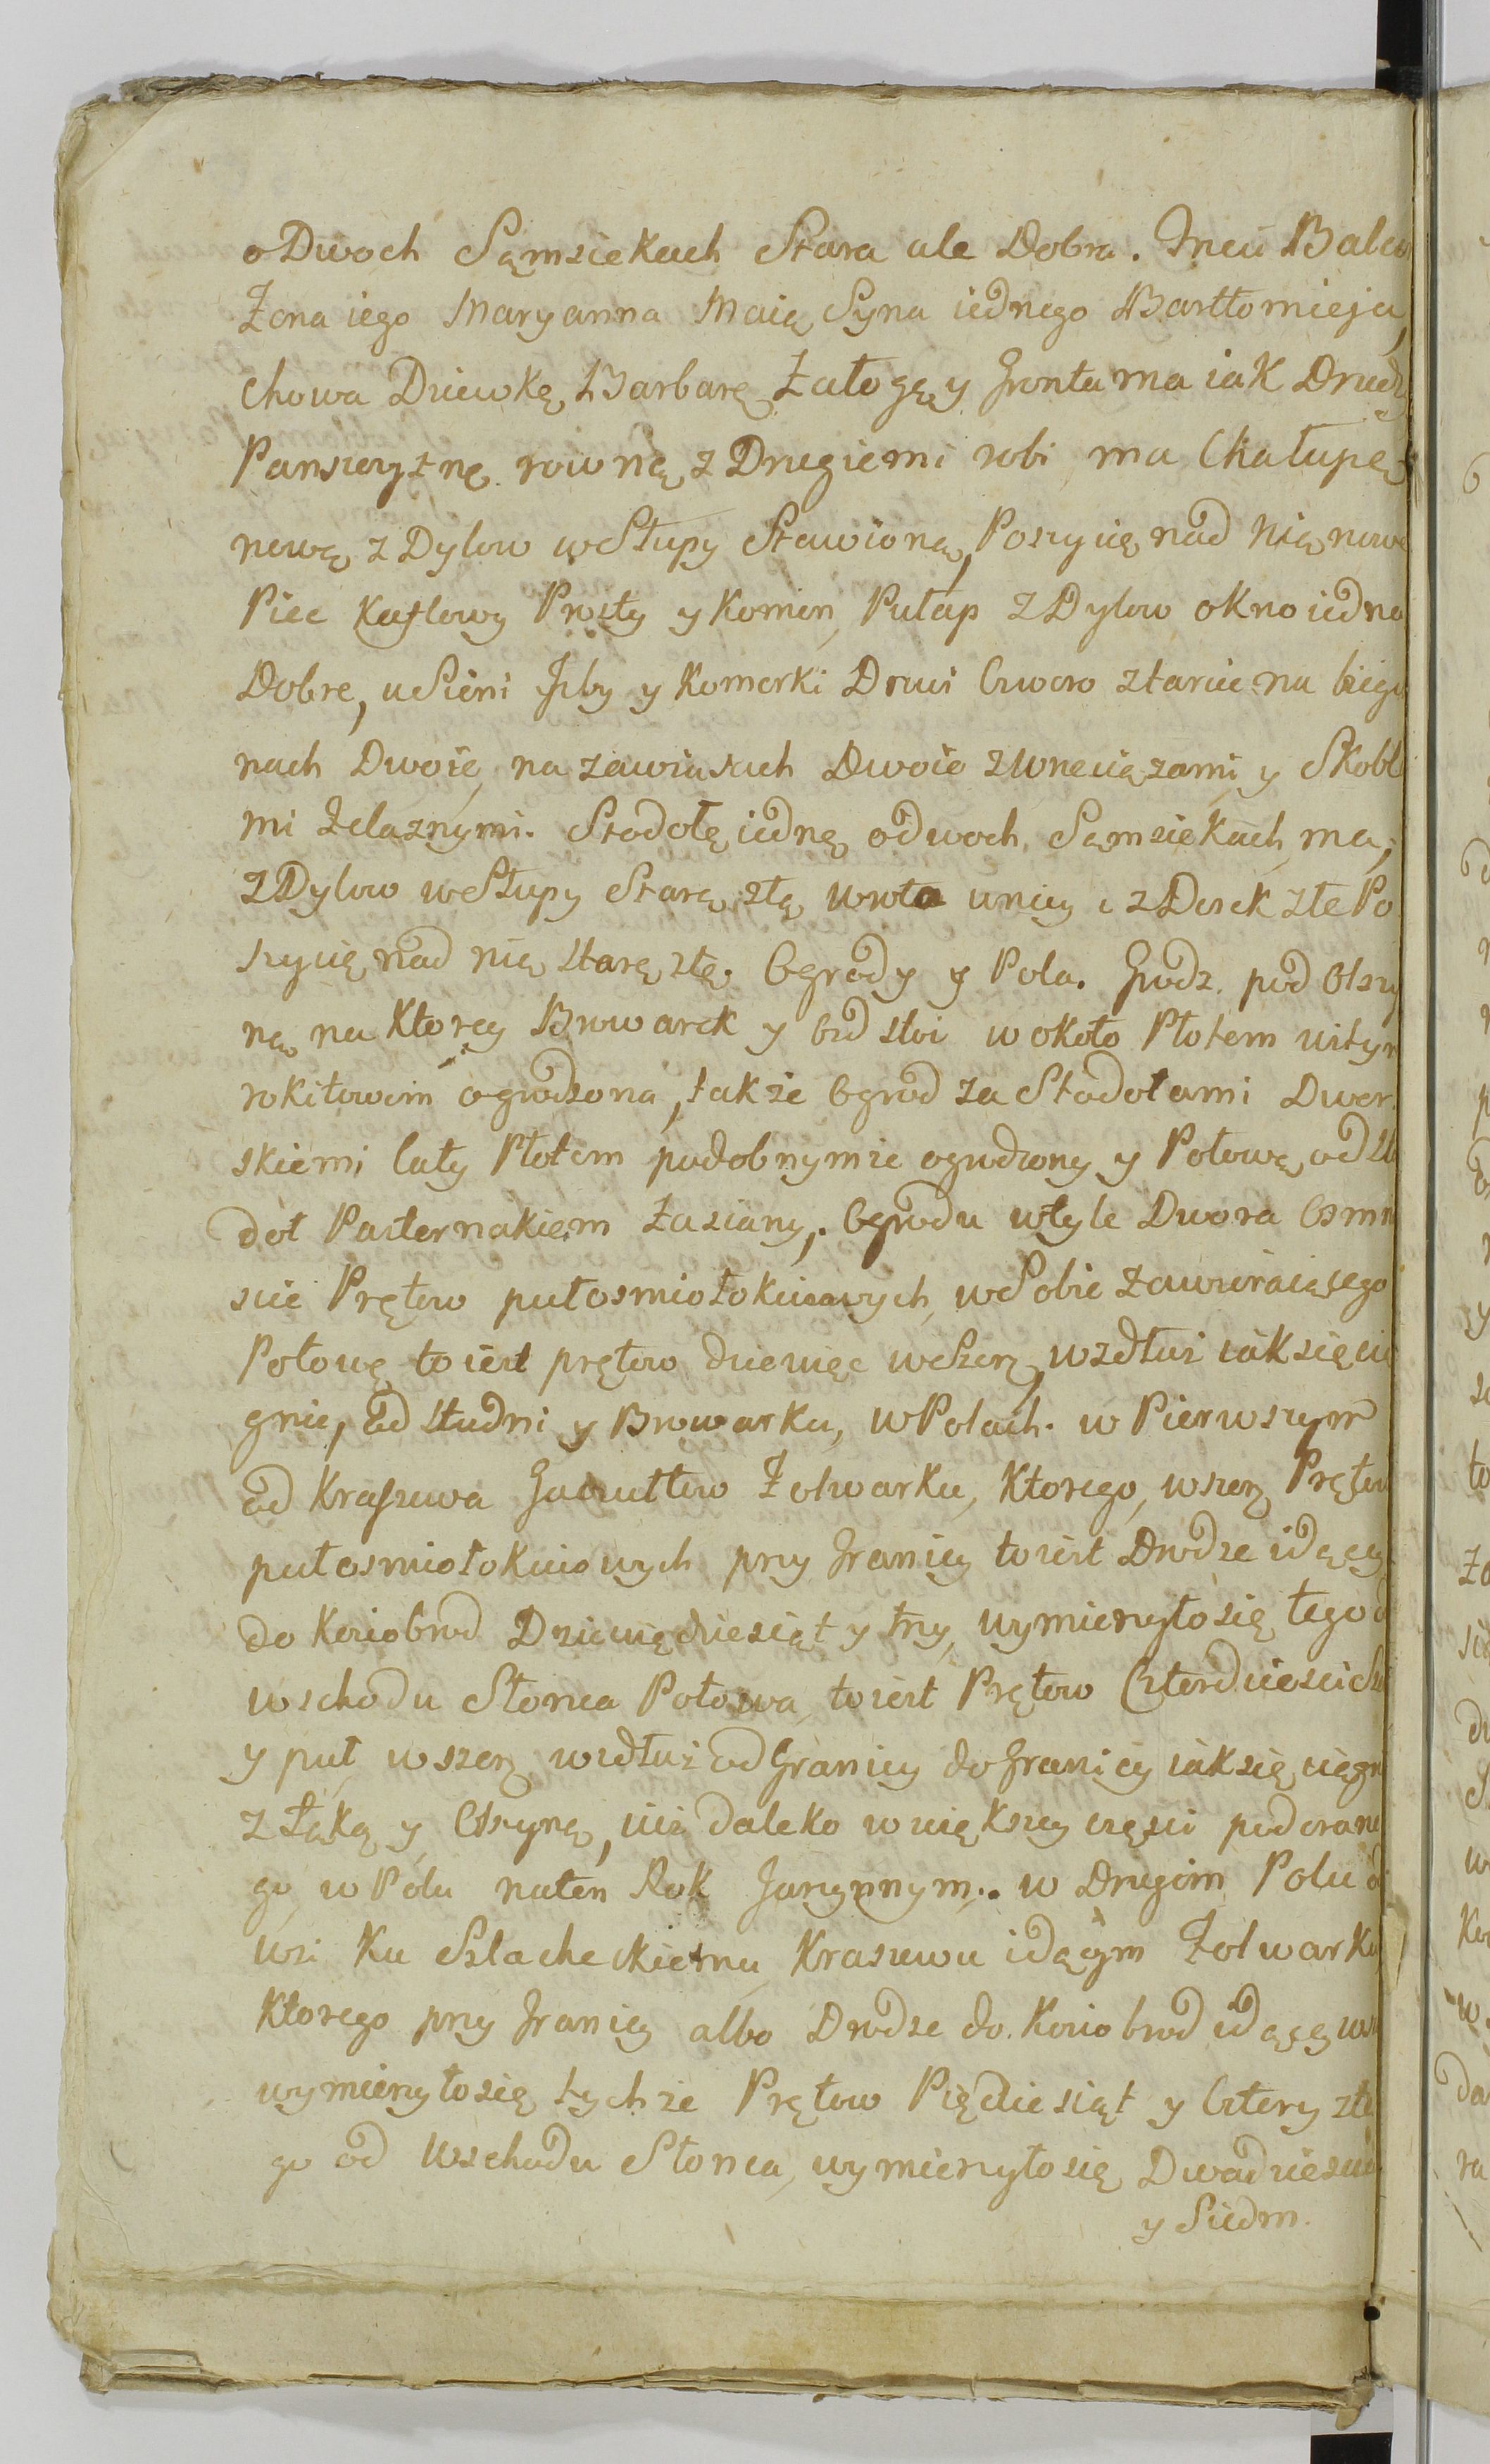 o Dwoch Sąmsiekach Stara ale Dobra. Trzeci Balce
Zona iego Maryanna Maią Syna iednego Bartłomieja,
chowa Dziewkę Barbarę Załogę y Grontu ma iak Drudzy
Panszczyznę rowną z Drugiemi robi ma Chałupę
nową z Dylow w Słupy Stawioną, Poszycię nad nią nowe
Piec Kaflowy Prosty y Komin, Pułap z Dylow okno iedno
Dobre, u Sieni Izby y Komorki Drzwi Czworo z tarcic na biegu
nach Dwoie, na zawiasach Dwoie z wrzeciązami y Skobla
mi żelaznymi. Stodołę iednę o dwoch Sąmsiekach ma,
z Dylow w Słupy Starą złą wrota u niey z Desek złe Po
szycię nad nią starę złę. Ogrody y Pola. Grodz. pod Olszy
ną na Ktorey Browarek y Brd stoi w około Płotem witym
rokitowem ogrodzona, także Ogrod za Stodołami Dwor
skiemi cały Płotem podobnymze ogrodzony y Połowę od Sto
doł Pasternakiem Zasiany. Ogrodu w tyle Dwora Osmna
scie Prętow pułosmiołokciowych, w Sobie zawieraiącego
Połowę to iest prętow dziewięc w Szerz, wzdłuż iak się cią
gnie, od studni y Browarku, w Polach. w Pierwszym
od Kraszewa Gawułtow Folwarku, Ktorego, wszerz Prętow
pułosmiołokciowych przy Granicy to iest Drodze idącey
do Koziobrod Dziewiędziesiąt y trzy, wymierzyło się tego od
wschodu Słonca Połowa, to iest Prętow Czterdziescisze
y puł wszerz wzdłuż od Granicy do Granicy iak się ciągni
z łąką y Olszyną, niż daleko w większey częsci podorane
go w Polu naten Rok Jarzynnym. w Drugim Polu od
wsi Ku Szlacheckiemu Kraszewu idącym Folwarku
Ktorego przy Granicy albo Drodze do Koziobrod idącey wsz
wymierzyło się tychże Prętow Piędziesiąt y Cztery z te
go od Wschodu Słonca, wymierzyło się Dwadziescia
y Siedm.